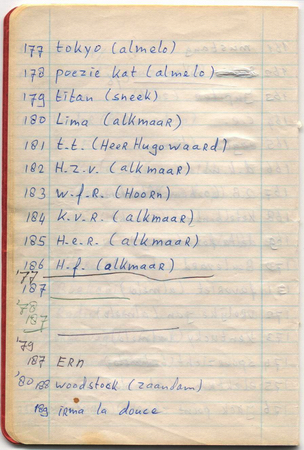 177 tokyo (almelo)
178 poezie kat (almelo)
179 titan (sneek)
180 Lima (alkmaar)
181 t.t. (Heer Hugowaard)
182 H.Z.V. (alkmaar)
183 W.f.R. (Hoorn)
184 K.V.R. (alkmaar)
185 H.e.R. (alkmaar)
186 H.f. (alkmaar)
'77
187
'78
187
'79
187 ERN
'80 188 woodstock (zaandam)
189 irma la douce